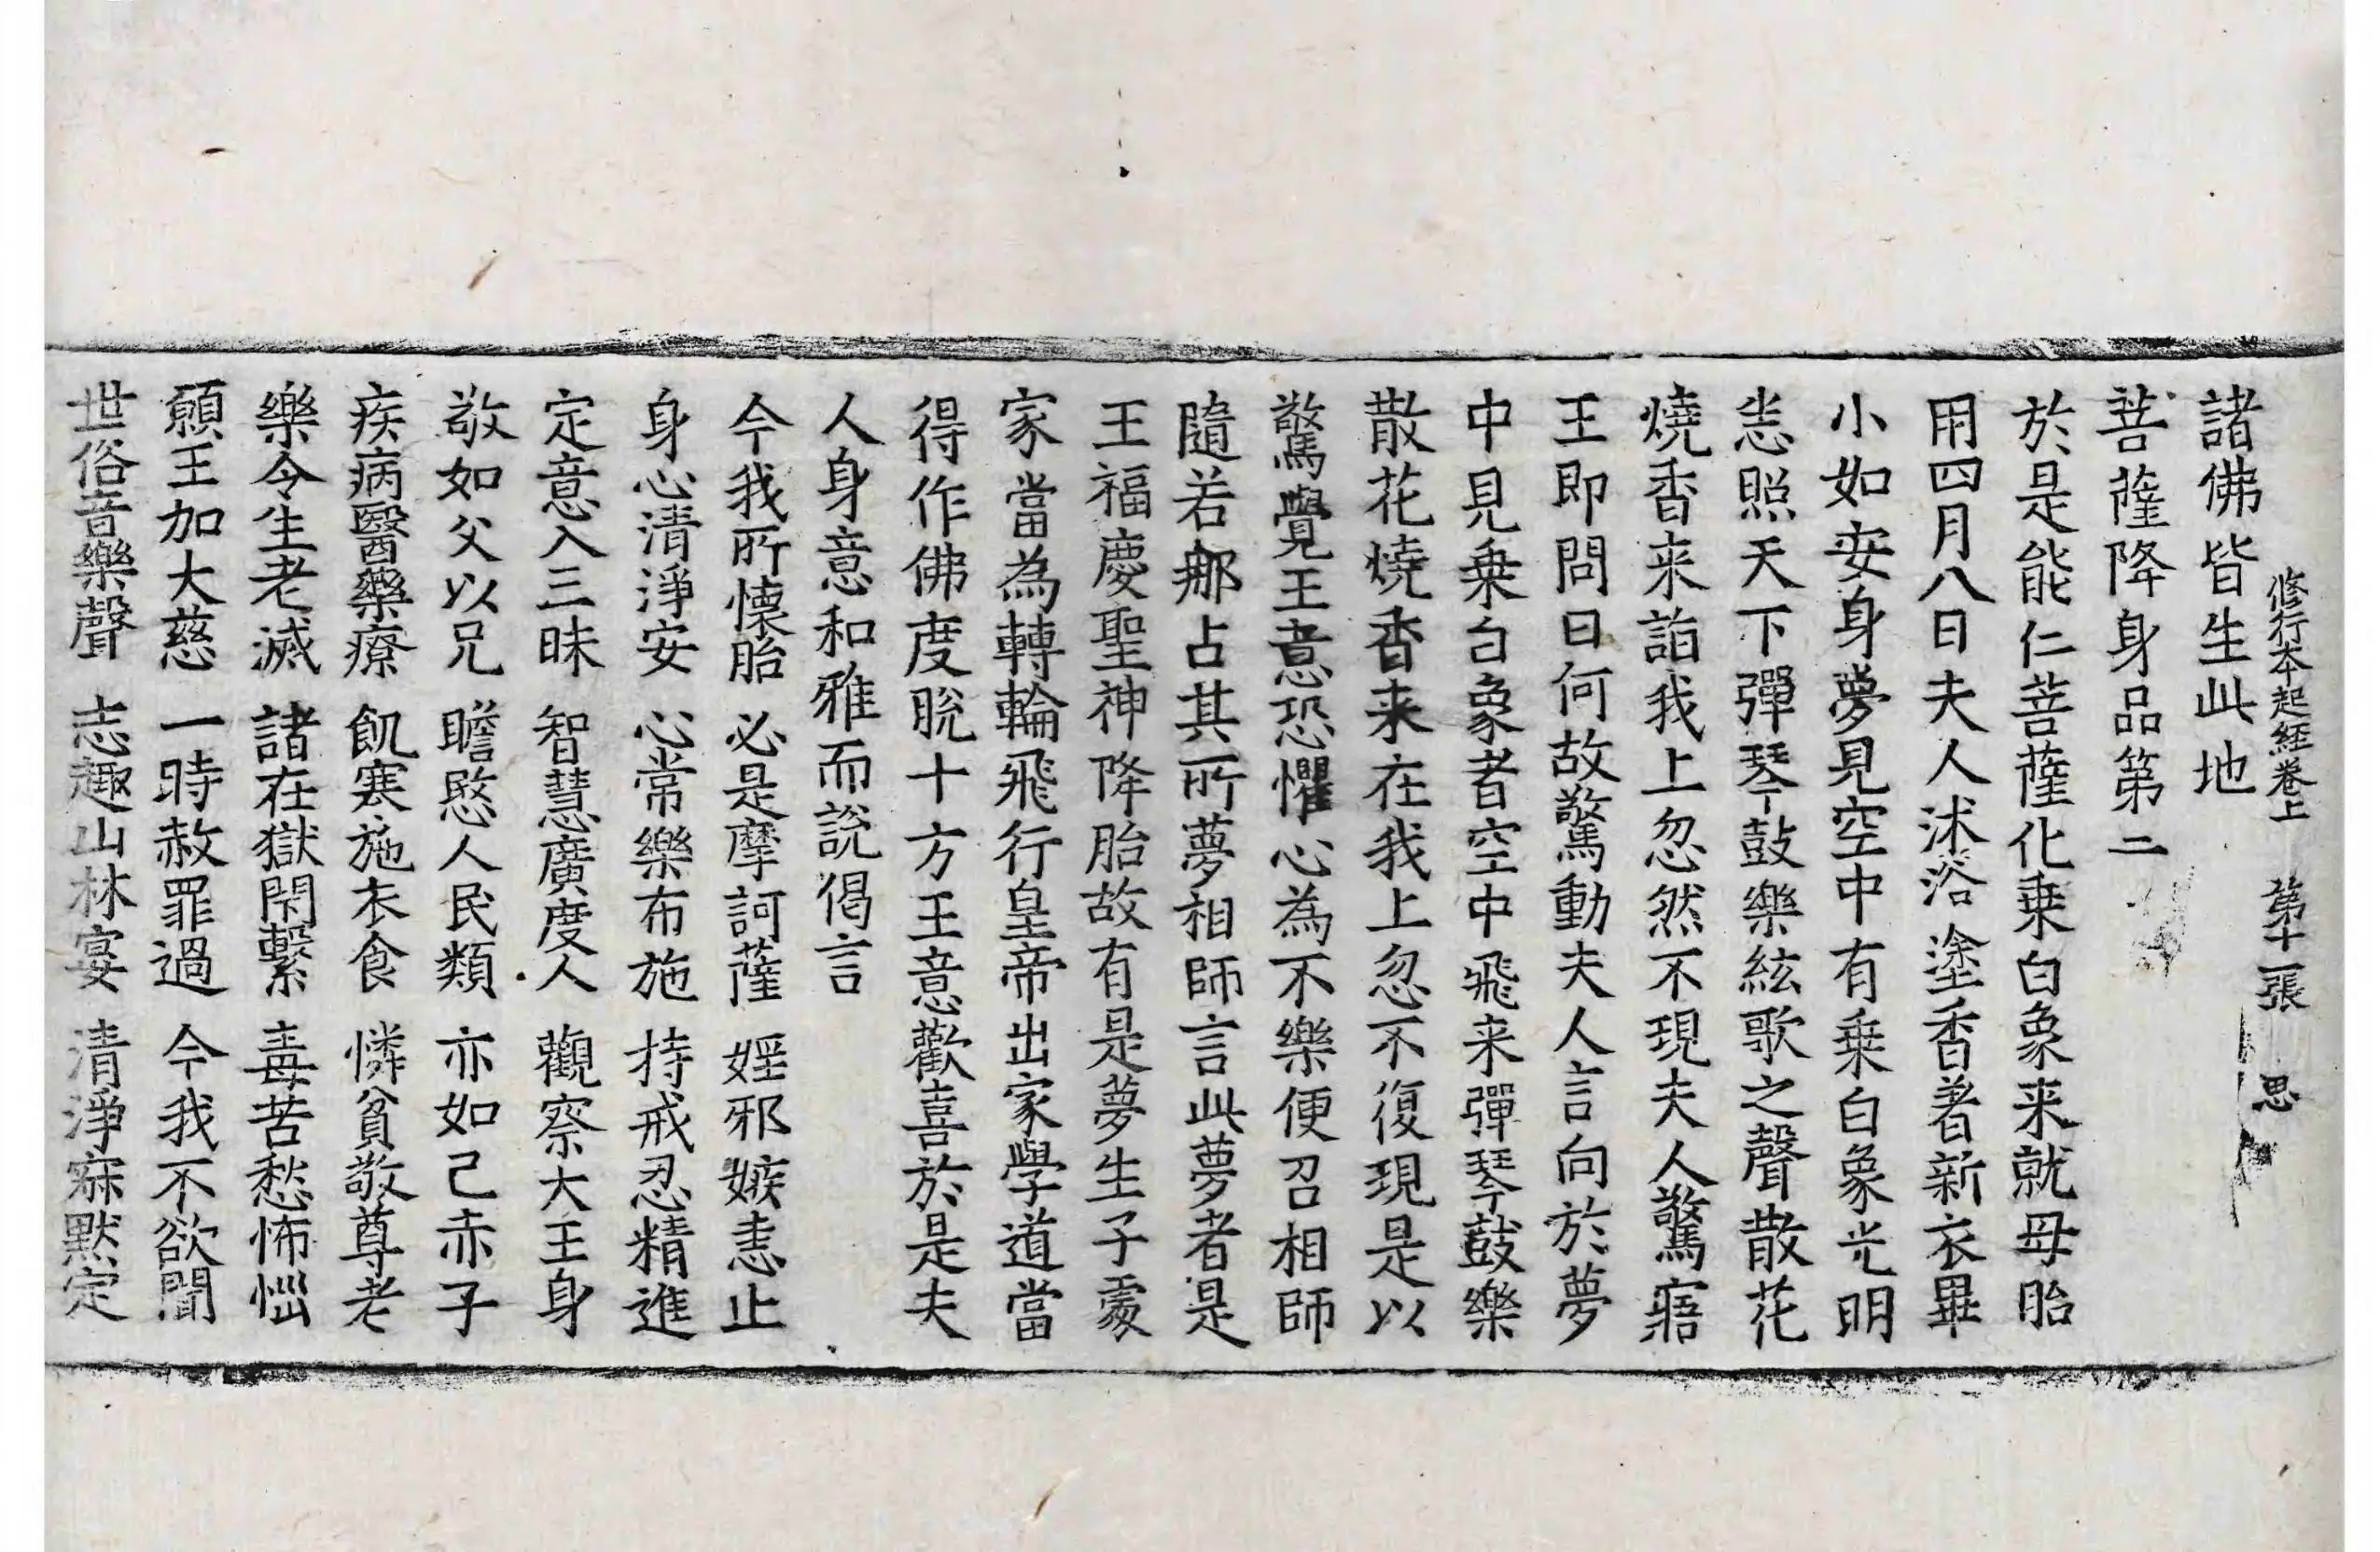 修行本起經卷上 第十一張 思
諸佛皆生此地
菩薩降身品第二
於是能仁菩薩化乗白象来就母胎
用四月八日夫人沐浴塗香著新衣畢
小如安身夢見空中有乗白象光明
悉照天下彈琴鼓樂絃歌之聲散花
燒香来詣我上忽然不現夫人驚寤
王即問曰何故驚動夫人言向於夢
中見乗白象者空中飛来彈琴鼓樂
散花燒香来在我上忽不復現是以
驚覺王意恐懼心為不樂便召相師
隨若那占其所夢相師言此夢者是
王福慶聖神降胎故有是夢生子處
家當為轉輪飛行皇帝出家學道當
得作佛度脫十方王意歡喜於是夫
人身意和雅而說偈言
今我所懷胎 必是摩訶薩 婬邪嫉恚止
身心清淨安 心常樂布施 持戒忍精進
定意入三昧 智慧廣度人 觀察大王身
敬如父以兄 瞻愍人民類 亦如己赤子
疾病醫藥療 飢寒施衣食 憐貧敬尊老
樂令生老滅 諸在獄閉繫 毒苦愁怖惱
願王加大慈 一時赦罪過 今我不欲聞
世俗音樂聲 志趣山林宴 清淨寐默定